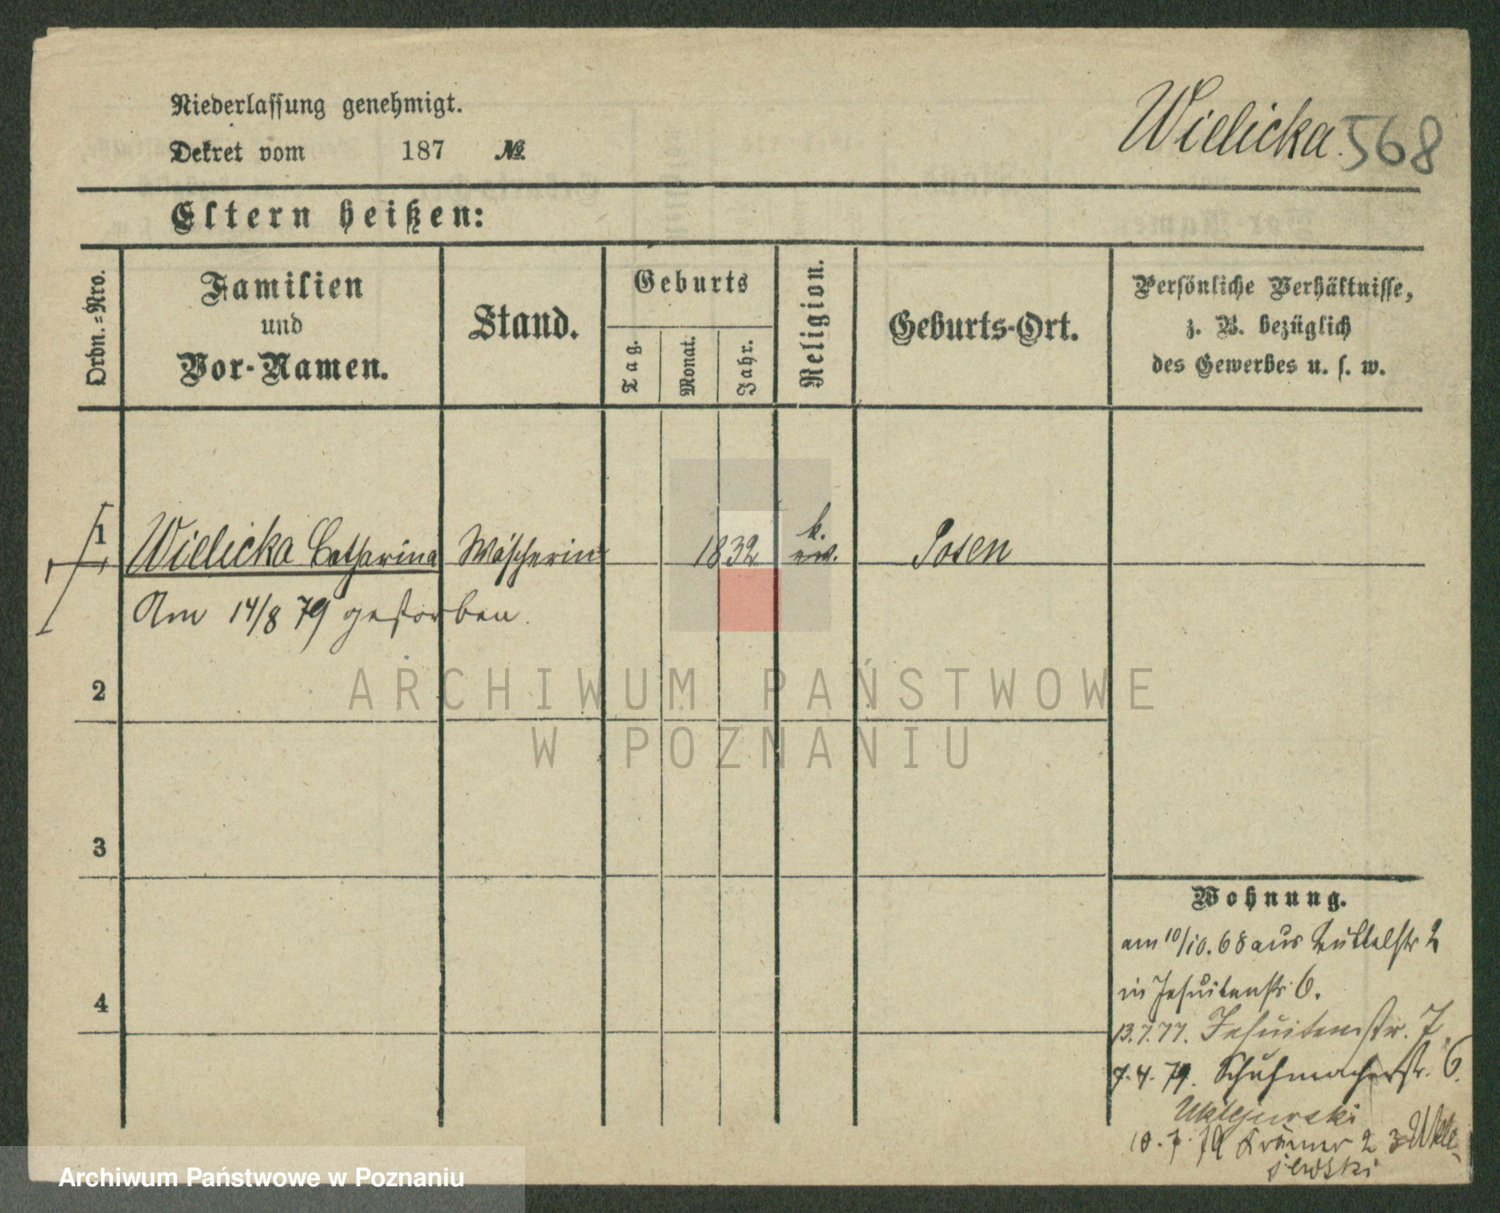 Niederlassung genehmigt.
Dekret vom 187 №
Wielicka. 568
Eltern heißen:
Ordn.=Nro.
Familien
und
Vor-Namen.
Stand.
Geburts
Tag.
Monat.
Jahr.
Religion.
Geburts-Ort.
Persönliche Verhältnisse,
z. B. bezüglich
des Gewerbes u. s. w.
1 Wielicka Catharina Wäscherin 1832 k. Posen
Am 14/8 79 gestorben.
2
3
4
Wohnung.
am 10/10. 68 aus 2
in Jesuitenstr 6.
13.7.77. Jesuitenstr. 7.
7.4.79. Schuhmacherstr. 6.
Uklejewski
10.7.79 Krämer 2 z Ukle-
jewski
ARCHIWUM PAŃSTWOWE
W POZNANIU
Archiwum Państwowe w Poznaniu